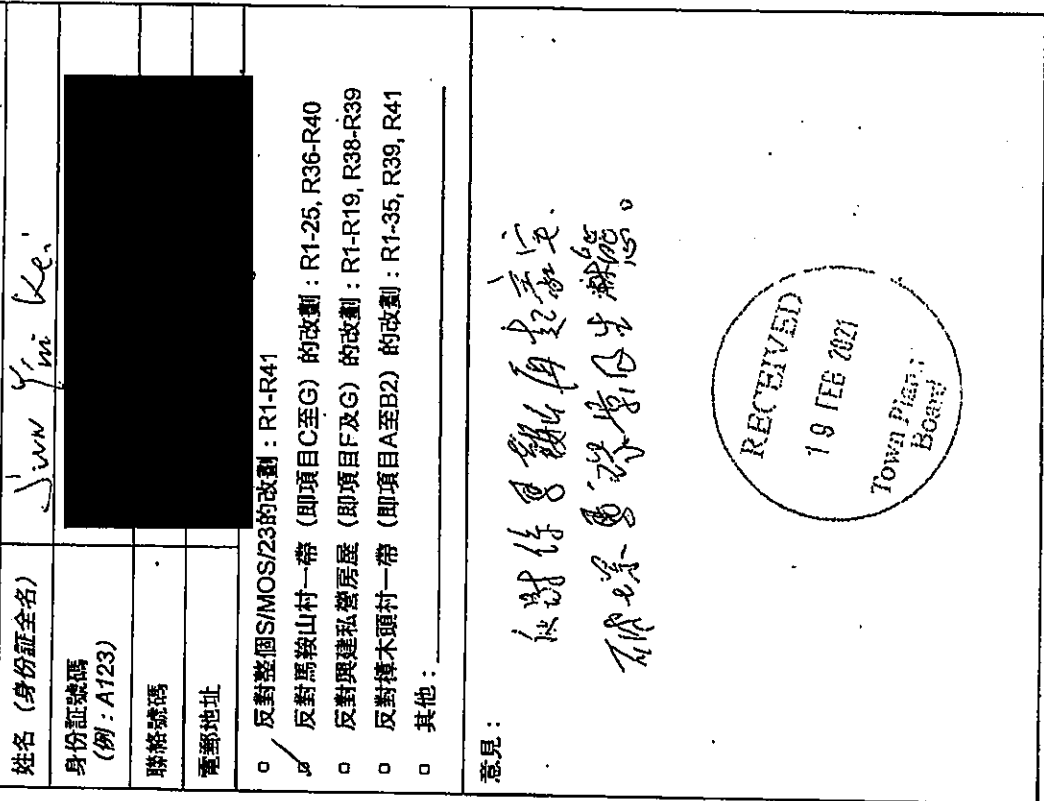 姓名 (身份証全名)
Jinn Yin Kei
身份証號碼
(例：A123)
聯絡號碼
電郵地址
反對整個S/MOS/23的改劃：R1-R41
反對馬鞍山村一帶 (即項目C至G) 的改劃：R1-25, R36-R40
反對興建私營房屋 (即項目F及G) 的改劃：R1-R19, R38-R39
反對樟木頭村一帶 (即項目A至B2) 的改劃：R1-35, R39, R41
其他：
意見：
反對係馬鞍山再起豪宅.
破壞環境及生態。
RECEIVED
19 FEB 2021
Town Planning
Board